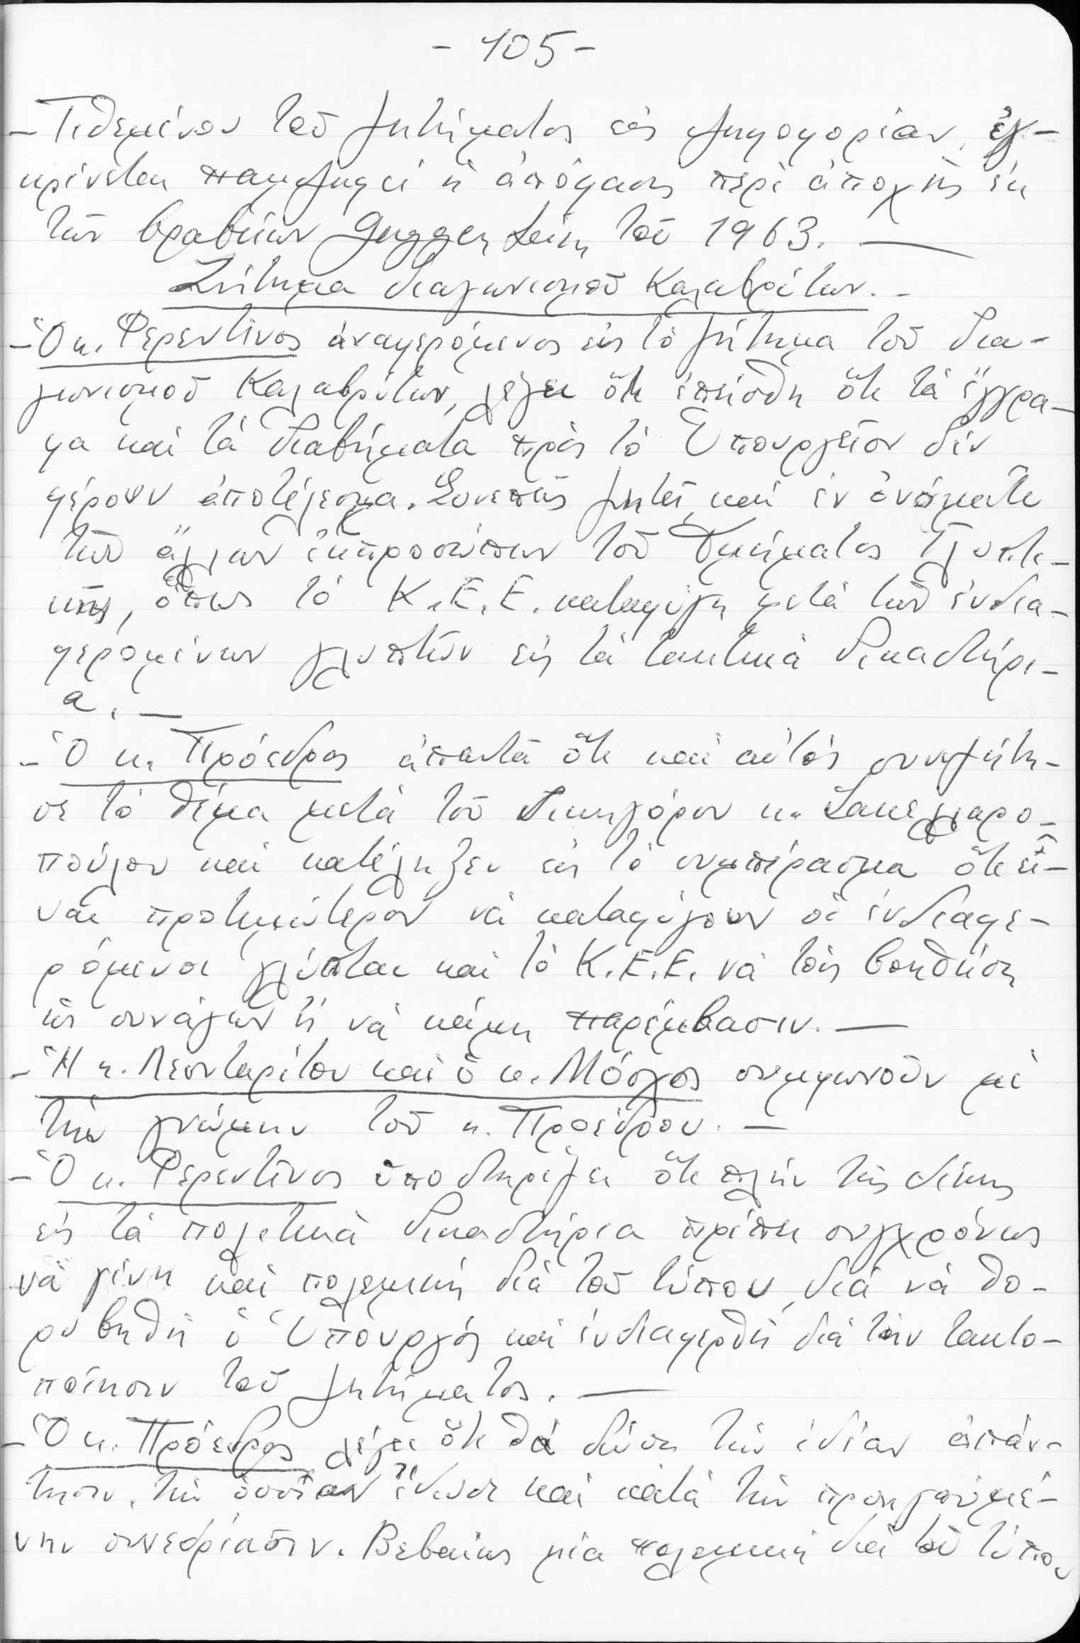 - 105 -
- Τιθεμένου τοῦ ζητήματος εἰς ψηφοφορίαν, ἐγ-
κρίνεται παμψηφεί ἡ ἀπόφασις περί ἀποχῆς ἐκ
τῶν βραβείων Guggenheim τοῦ 1963. —
Ζήτημα διαγωνισμοῦ Καλαβρύτων. -
- Ὁ κ. Φερεντῖνος ἀναφερόμενος εἰς τό ζήτημα τοῦ δια-
γωνισμοῦ Καλαβρύτων, λέγει ὅτι ἐπείσθη ὅτι τά ἔγγρα-
φα καί τά διαβήματα πρός τό Ὑπουργεῖον δέν
φέρουν ἀποτέλεσμα. Συνεπῶς ζητεῖ, καί ἐν ὀνόματι
τῶν ἄλλων ἐκπροσώπων τοῦ Τμήματος Γλυπτι-
κῆς, ὅπως τό Κ.Ε.Ε. καταφύγῃ μετά τῶν ἐνδια-
φερομένων γλυπτῶν εἰς τά τακτικά δικαστήρι-
α. —
- Ὁ κ. Πρόεδρος ἀπαντᾶ ὅτι καί αὐτός συνεζήτη-
σε τό θέμα μετά τοῦ δικηγόρου κ. Σακελλαρο-
πούλου καί κατέληξεν εἰς τό συμπέρασμα ὅτι εἶ-
ναι προτιμώτερον νά καταφύγουν οἱ ἐνδιαφε-
ρόμενοι γλύπται καί τό Κ.Ε.Ε. νά τούς βοηθήσῃ
ὡς συνάγων ἤ νά κάμῃ παρέμβασιν. —
- Ἡ κ. Λεονταρίτου καί ὁ κ. Μόσχος συμφωνοῦν μέ
τήν γνώμην τοῦ κ. Προέδρου. —
- Ὁ κ. Φερεντῖνος ὑποστηρίζει ὅτι πλήν τῆς δίκης
εἰς τά πολιτικά δικαστήρια πρέπει συγχρόνως
νά γίνῃ καί πολεμική διά τοῦ τύπου, διά νά θο-
ρυβηθῆ ὁ Ὑπουργός καί ἐνδιαφερθῆ διά τήν τακτο-
ποίησιν τοῦ ζητήματος. —
- Ὁ κ. Πρόεδρος λέγει ὅτι θά δώσῃ τήν ἰδίαν ἀπάν-
τησιν, τήν ὁποίαν ἔδωσε καί κατά τήν προηγουμέ-
νην συνεδρίασιν. Βεβαίως μία πολεμική διά τοῦ τύπου